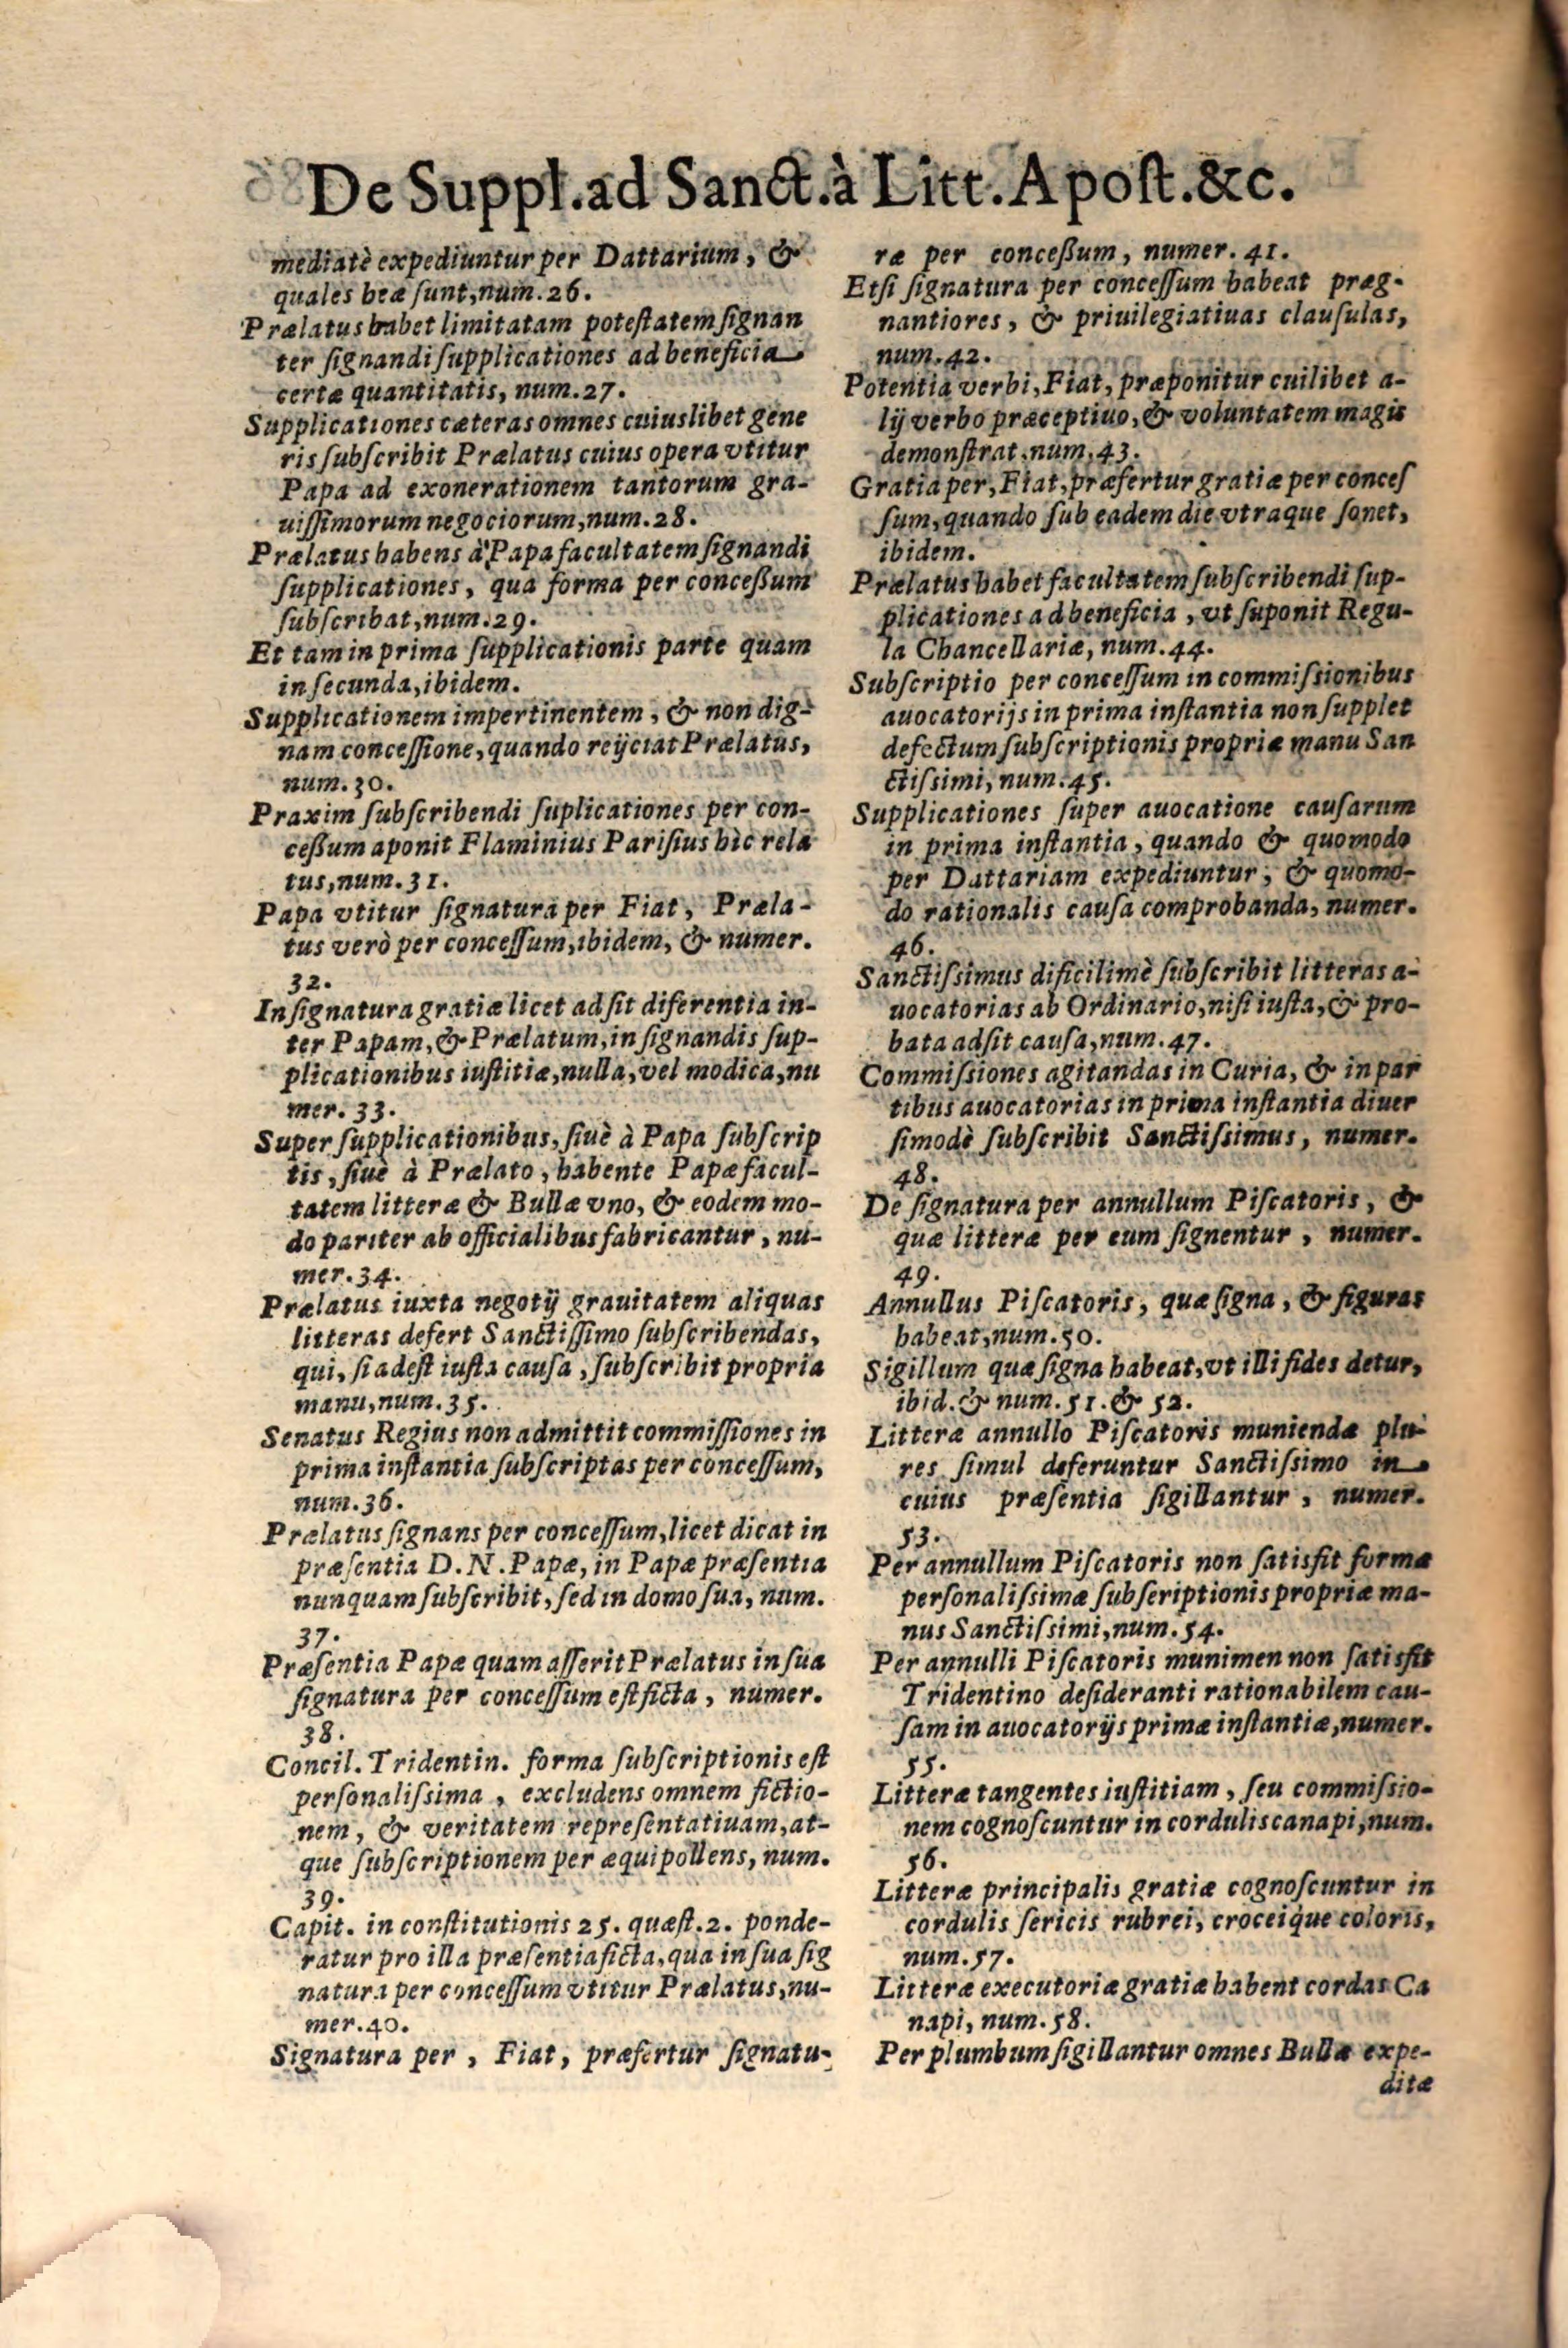 De Suppl.ad Sanct.à Litt.Apost.&c.
mediatè expediuntur per Dattarium, &
quales heæ sunt, num.26.
Prælatus habet limitatam potestatem signan
ter signandi supplicationes ad beneficia
certæ quantitatis, num.27.
Supplicationes cæteras omnes cuiuslibet gene
ris subscribit Prælatus cuius opera vtitur
Papa ad exonerationem tantorum gra-
uissimorum negociorum, num.28.
Prælatus habens à Papa facultatem signandi
supplicationes, qua forma per concessum
subscribat, num.29.
Et tam in prima supplicationis parte quam
in secunda, ibidem.
Supplicationem impertinentem, & non dig-
nam concessione, quando reijciat Prælatus,
num.30.
Praxim subscribendi suplicationes per con-
cessum aponit Flaminius Parisius hìc rela
tus, num.31.
Papa vtitur signatura per Fiat, Præla-
tus verò per concessum, ibidem, & numer.
32.
In signatura gratiæ licet adsit diferentia in-
ter Papam, & Prælatum, in signandis sup-
plicationibus iustitiæ, nulla, vel modica, nu
mer. 33.
Super supplicationibus, siuè à Papa subscrip
tis, siuè à Prælato, habente Papæ facul-
tatem litteræ & Bullæ vno, & eodem mo-
do pariter ab officialibus fabricantur, nu-
mer.34.
Prælatus iuxta negotij grauitatem aliquas
litteras defert Sanctissimo subscribendas,
qui, si adest iusta causa, subscribit propria
manu, num.35.
Senatus Regius non admittit commissiones in
prima instantia subscriptas per concessum,
num.36.
Prælatus signans per concessum, licet dicat in
præsentia D.N.Papæ, in Papæ præsentia
nunquam subscribit, sed in domo sua, num.
37.
Præsentia Papæ quam asserit Prælatus in sua
signatura per concessum est ficta, numer.
38.
Concil.Tridentin. forma subscriptionis est
personalissima, excludens omnem fictio-
nem, & veritatem representatiuam, at-
que subscriptionem per æquipollens, num.
39.
Capit. in constitutionis 25. quæst.2. ponde-
ratur pro illa præsentia ficta, qua in sua sig
natura per concessum vtitur Prælatus, nu-
mer.40.
Signatura per, Fiat, præfertur signatu-
ræ per concessum, numer. 41.
Etsi signatura per concessum habeat præg-
nantiores, & priuilegiatiuas clausulas,
num.42.
Potentia verbi, Fiat, præponitur cuilibet a-
lij verbo præceptiuo, & voluntatem magis
demonstrat, num.43.
Gratia per, Fiat, præfertur gratiæ per conces
sum, quando sub eadem die vtraque sonet,
ibidem.
Prælatus habet facultatem subscribendi sup-
plicationes ad beneficia, vt suponit Regu-
la Chancellariæ, num.44.
Subscriptio per concessum in commissionibus
auocatorijs in prima instantia non supplet
defectum subscriptionis propriæ manu San
ctissimi, num.45.
Supplicationes super auocatione causarum
in prima instantia, quando & quomodo
per Dattariam expediuntur, & quomo-
do rationalis causa comprobanda, numer.
46.
Sanctissimus dificilimè subscribit litteras a-
uocatorias ab Ordinario, nisi iusta, & pro-
bata adsit causa, num.47.
Commissiones agitandas in Curia, & in par
tibus auocatorias in prima instantia diuer
simodè subscribit Sanctissimus, numer.
48.
De signatura per annullum Piscatoris, &
quæ litteræ per eum signentur, numer.
49.
Annullus Piscatoris, quæ signa, & figuras
habeat, num.50.
Sigillum quæ signa habeat, vt illi fides detur,
ibid. & num.51.& 52.
Litteræ annullo Piscatoris muniendæ plu-
res simul deferuntur Sanctissimo in
cuius præsentia sigillantur, numer.
53.
Per annullum Piscatoris non satisfit formæ
personalissimæ subscriptionis propriæ ma-
nus Sanctissimi, num.54.
Per annulli Piscatoris munimen non satisfit
Tridentino desideranti rationabilem cau-
sam in auocatorijs primæ instantiæ, numer.
55.
Litteræ tangentes iustitiam, seu commissio-
nem cognoscuntur in cordulis canapi, num.
56.
Litteræ principalis gratiæ cognoscuntur in
cordulis sericis rubrei, croceique coloris,
num.57.
Litteræ executoriæ gratiæ habent cordas Ca
napi, num.58.
Per plumbum sigillantur omnes Bullæ expe-
ditæ